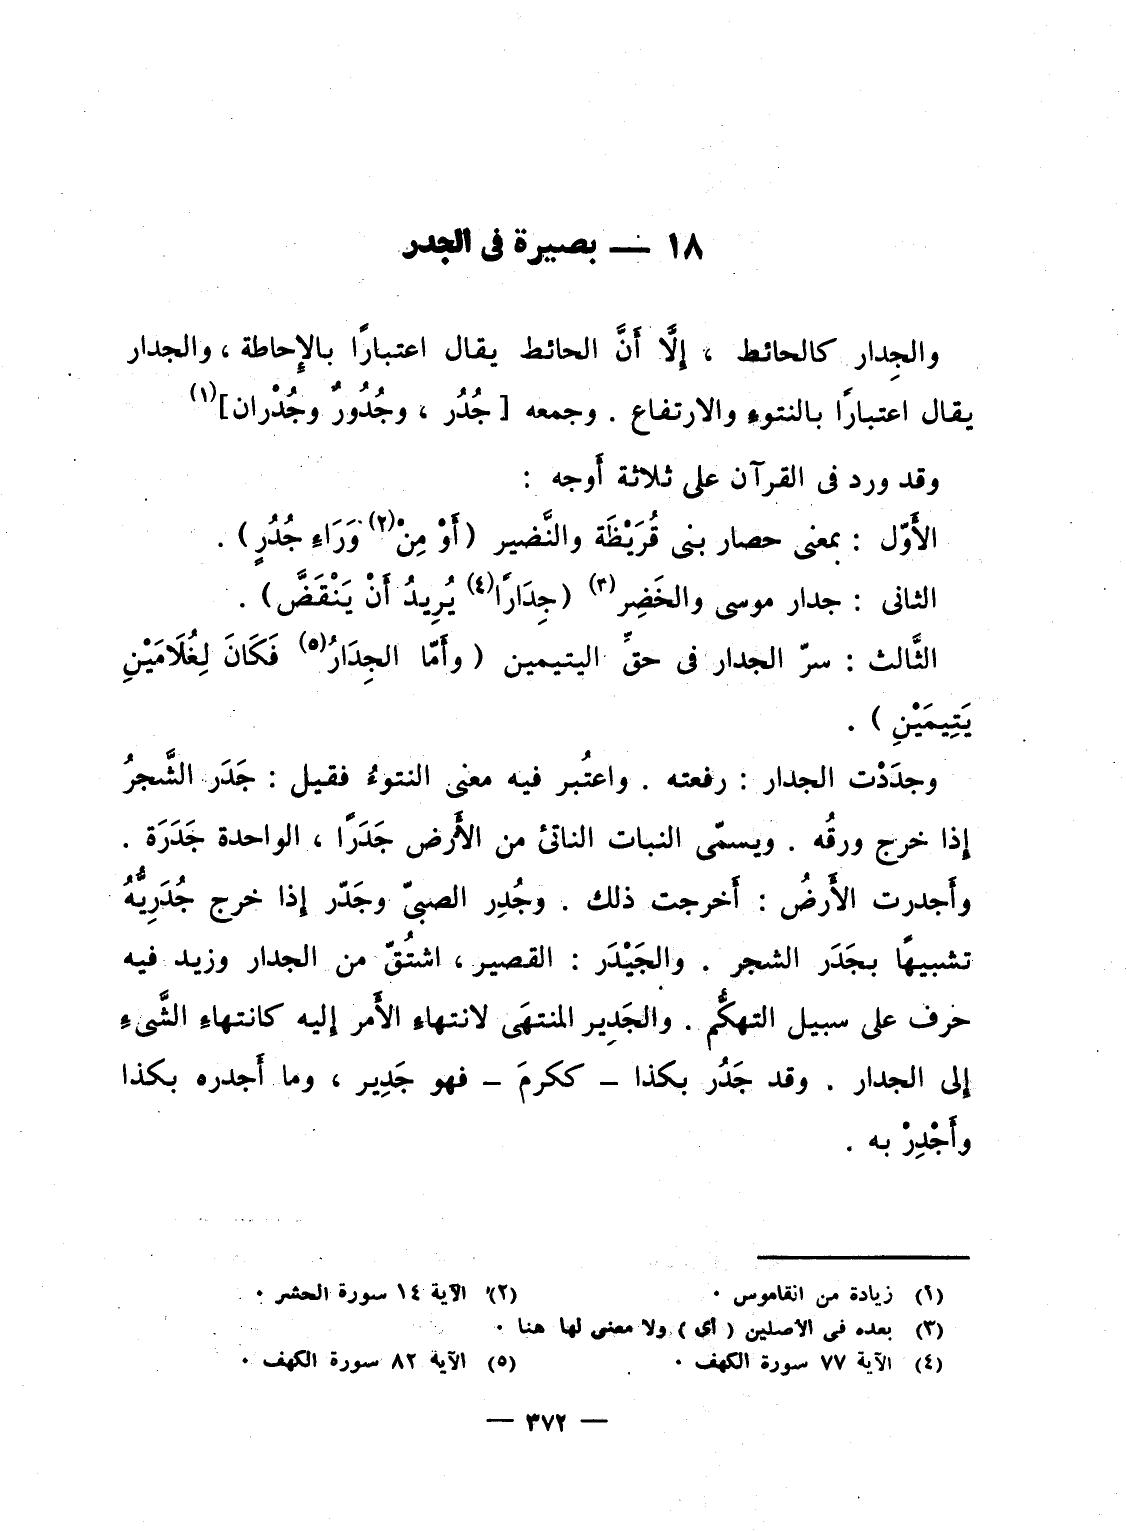 ١٨ — بصيرة فى الجدر
والجِدار كالحائط ، إِلَّا أَنَّ الحائط يقال اعتبارًا بالإِحاطة ، والجدار
يقال اعتبارًا بالنتوء والارتفاع . وجمعه [ جُدُر ، وجُدُورٌ وجُدْران ] (١)
وقد ورد فى القرآن على ثلاثة أَوجه :
الأَوّل : بمعنى حصار بنى قُرَيْظَة والنَّضير ( أَوْ مِنْ (٢) وَرَاءِ جُدُرٍ ) .
الثانى : جدار موسى والخَضِر (٣) ( جِدَارًا (٤) يُرِيدُ أَنْ يَنْقَضَّ ) .
الثَّالث : سرّ الجدار فى حقِّ اليتيمين ( وأَمّا الجِدَارُ (٥) فَكَانَ لِغُلَامَيْنِ
يَتِيمَيْنِ ) .
وجدَدْت الجدار : رفعته . واعتُبر فيه معنى النتوءُ فقيل : جَدَر الشَّجرُ
إِذا خرج ورقُه . ويسمّى النبات الناتئ من الأَرض جَدَرًا ، الواحدة جَدَرَة .
وأَجدرت الأَرضُ : أَخرجت ذلك . وجُدِر الصبىّ وجَدّر إِذا خرج جُدَرِيُّهُ
تشبيهًا بجَدَر الشجر . والجَيْدَر : القصير ، اشتُقّ من الجدار وزيد فيه
حرف على سبيل التهكُّم . والجَدِير المنتهَى لانتهاءِ الأَمر إِليه كانتهاءِ الشَّىءِ
إِلى الجدار . وقد جَدُر بكذا – ككرمَ – فهو جَدِير ، وما أَجدره بكذا
وأَجْدِرْ به .
(١) زيادة من القاموس . (٢) الآية ١٤ سورة الحشر .
(٣) بعده فى الأصلين ( أى ) ولا معنى لها هنا .
(٤) الآية ٧٧ سورة الكهف . (٥) الآية ٨٢ سورة الكهف .
— ٣٧٢ —